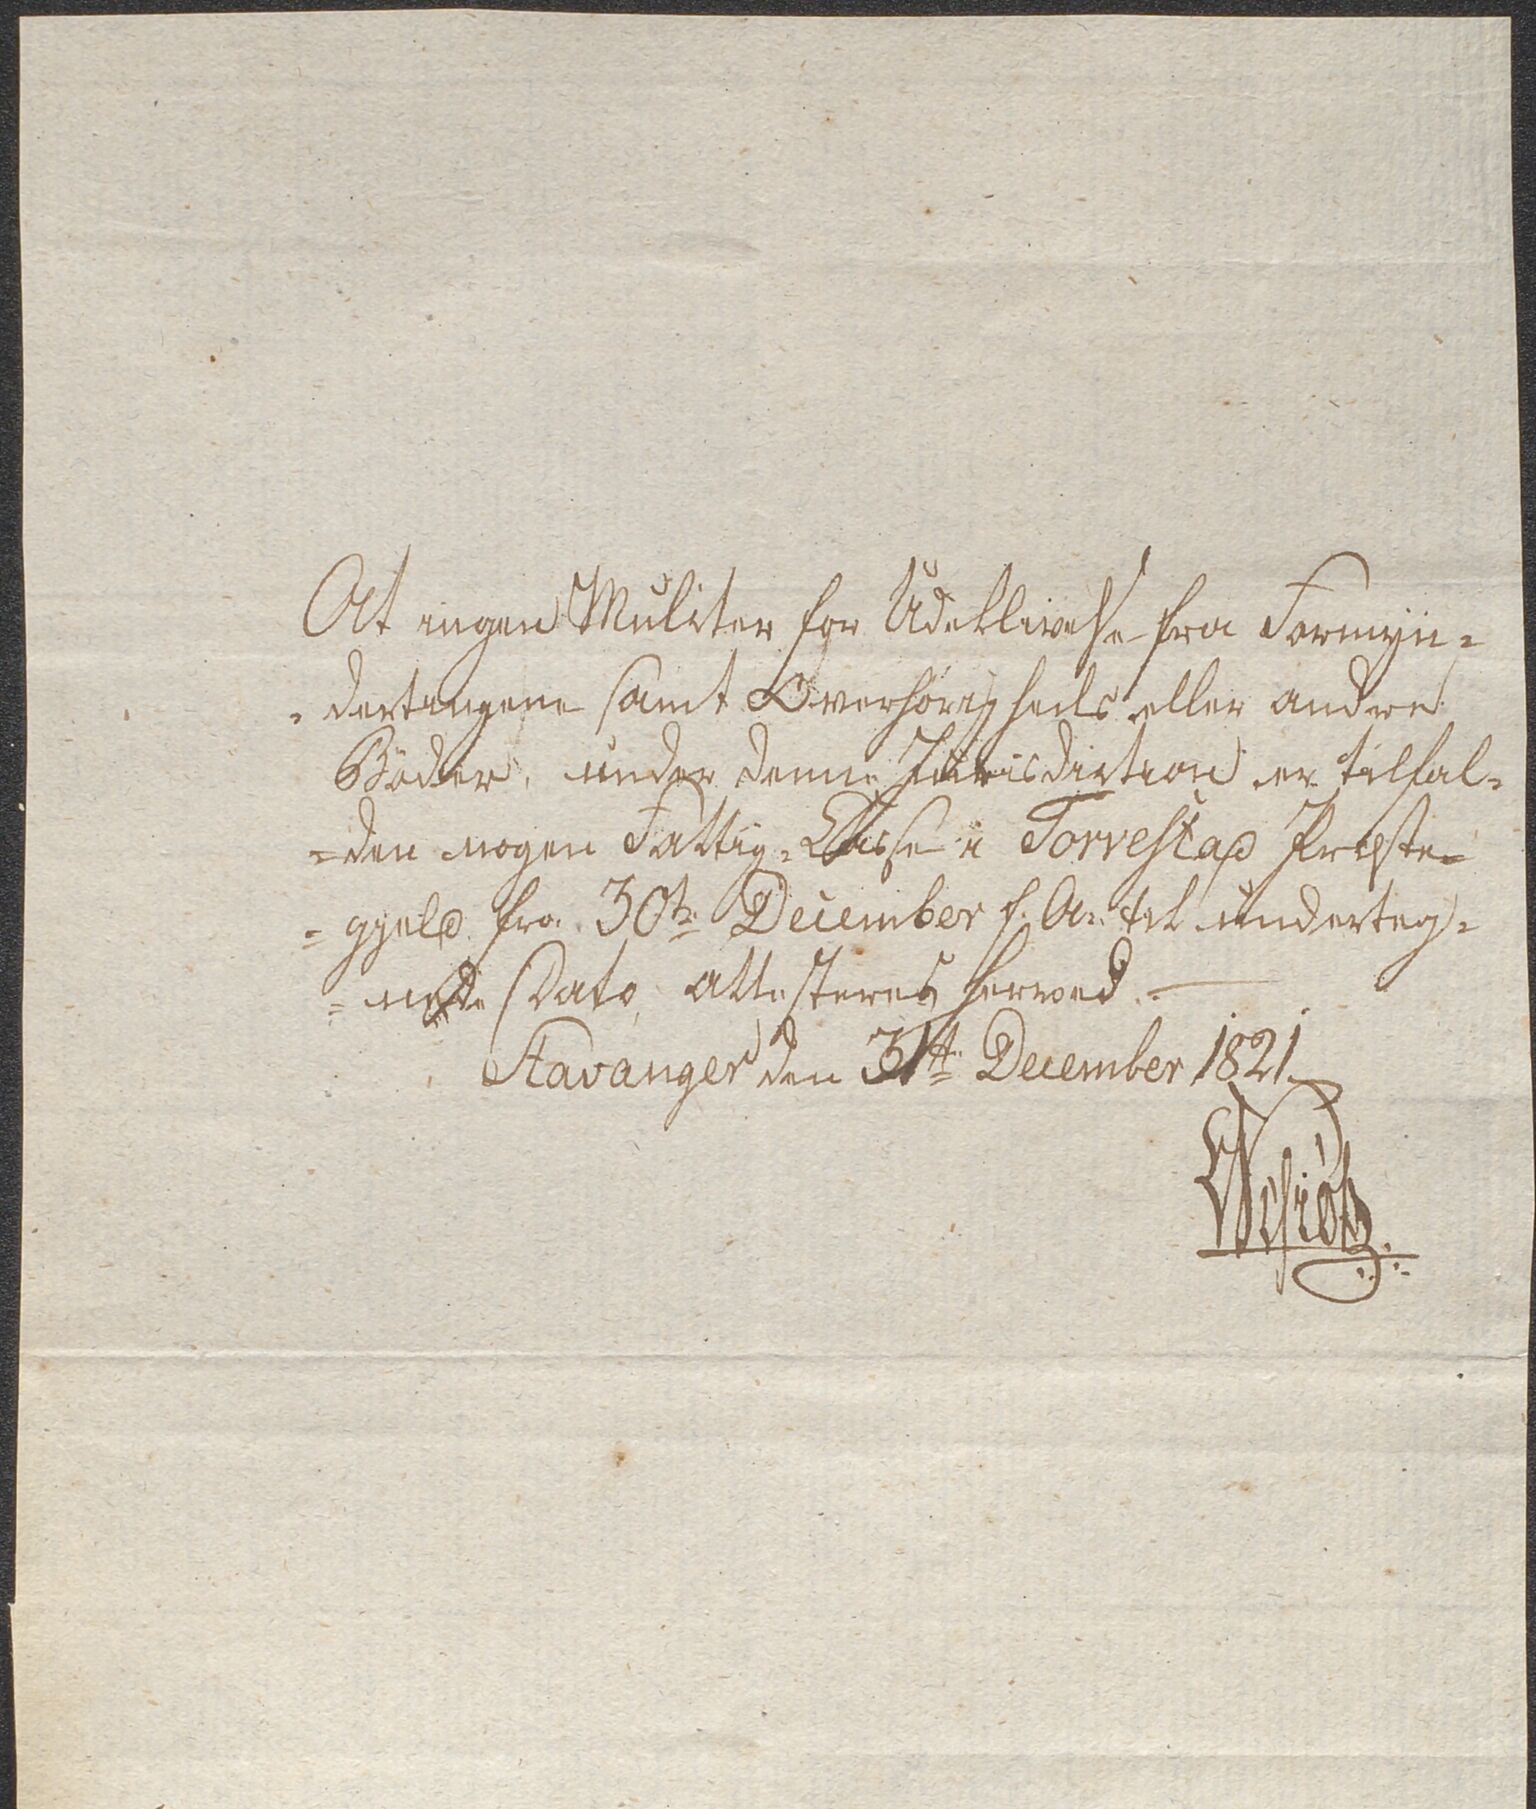 At ingen Mulcter for Udeblivelse fra Formyn=
=dertingene samt Overhørigheds eller andre
Bøder, under denne Jurisdiction er tilfal=
=den nogen Fattig-Casse i Torvestad Præste=
=gjeld fra 30te December f. A. til underteg=
=nede Dato, attesteres herved.
Stavanger den 31te December 1821.